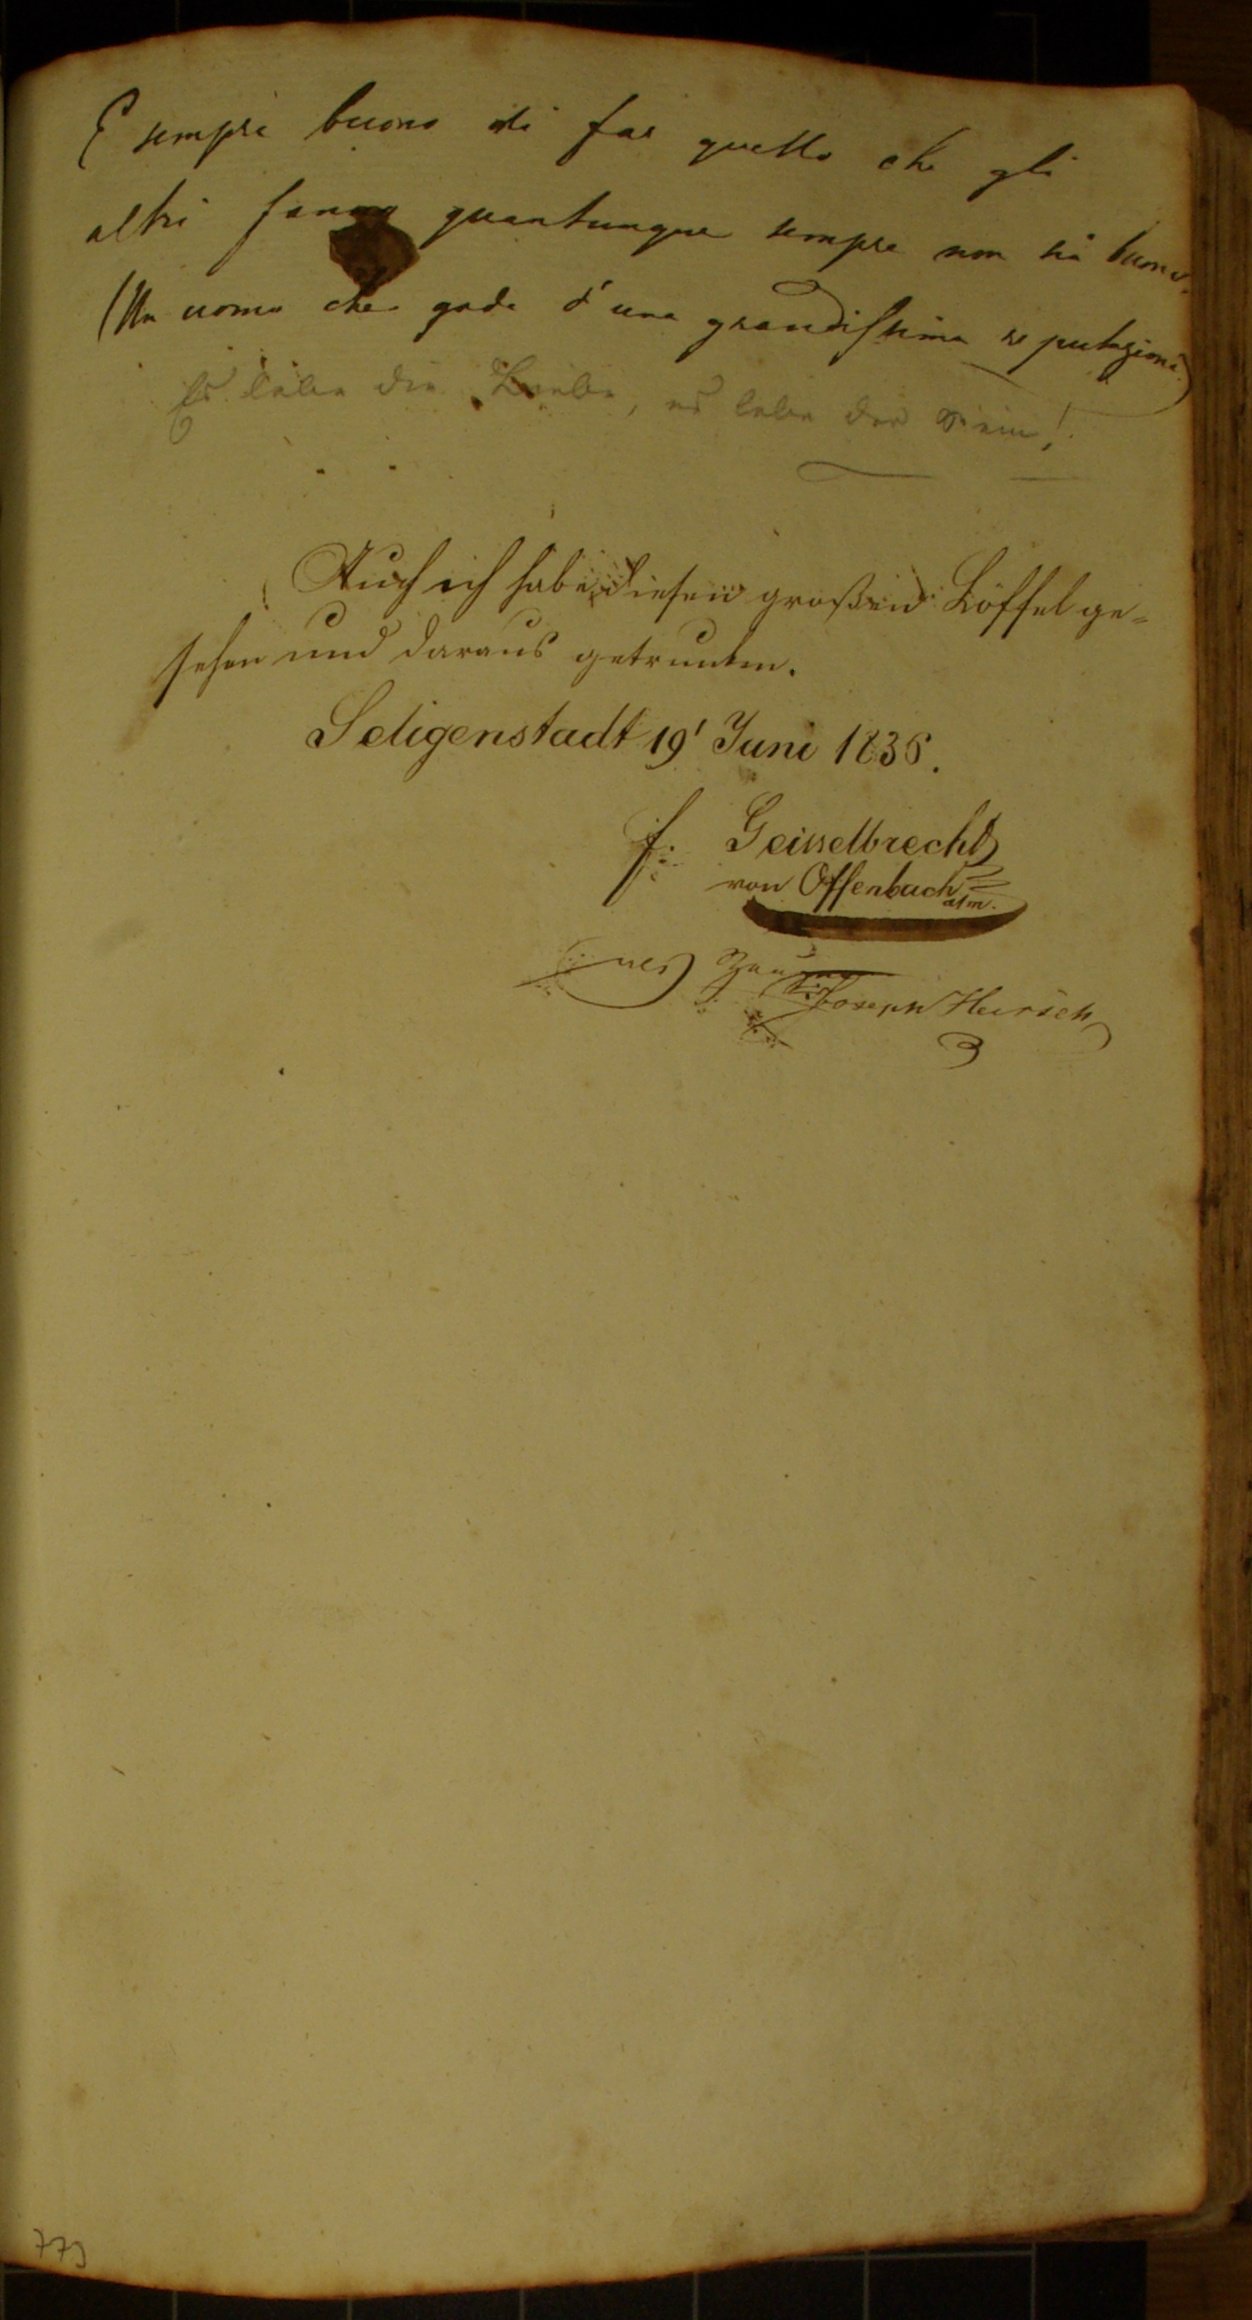 E sempre buono di far quello che gli
altri fanno quantunque sempre non sia buono.
(Un uomo che gode d'una grandissima reputazione.)
Es lebe die Liebe, es lebe der Wein!
Auch ich habe diesen großen Löffel ge-
sehen und daraus getrunken.
Seligenstadt 19' Juni 1836.
f. Geisselbrecht
von Offenbach a/m.
Joseph Hirsch
773